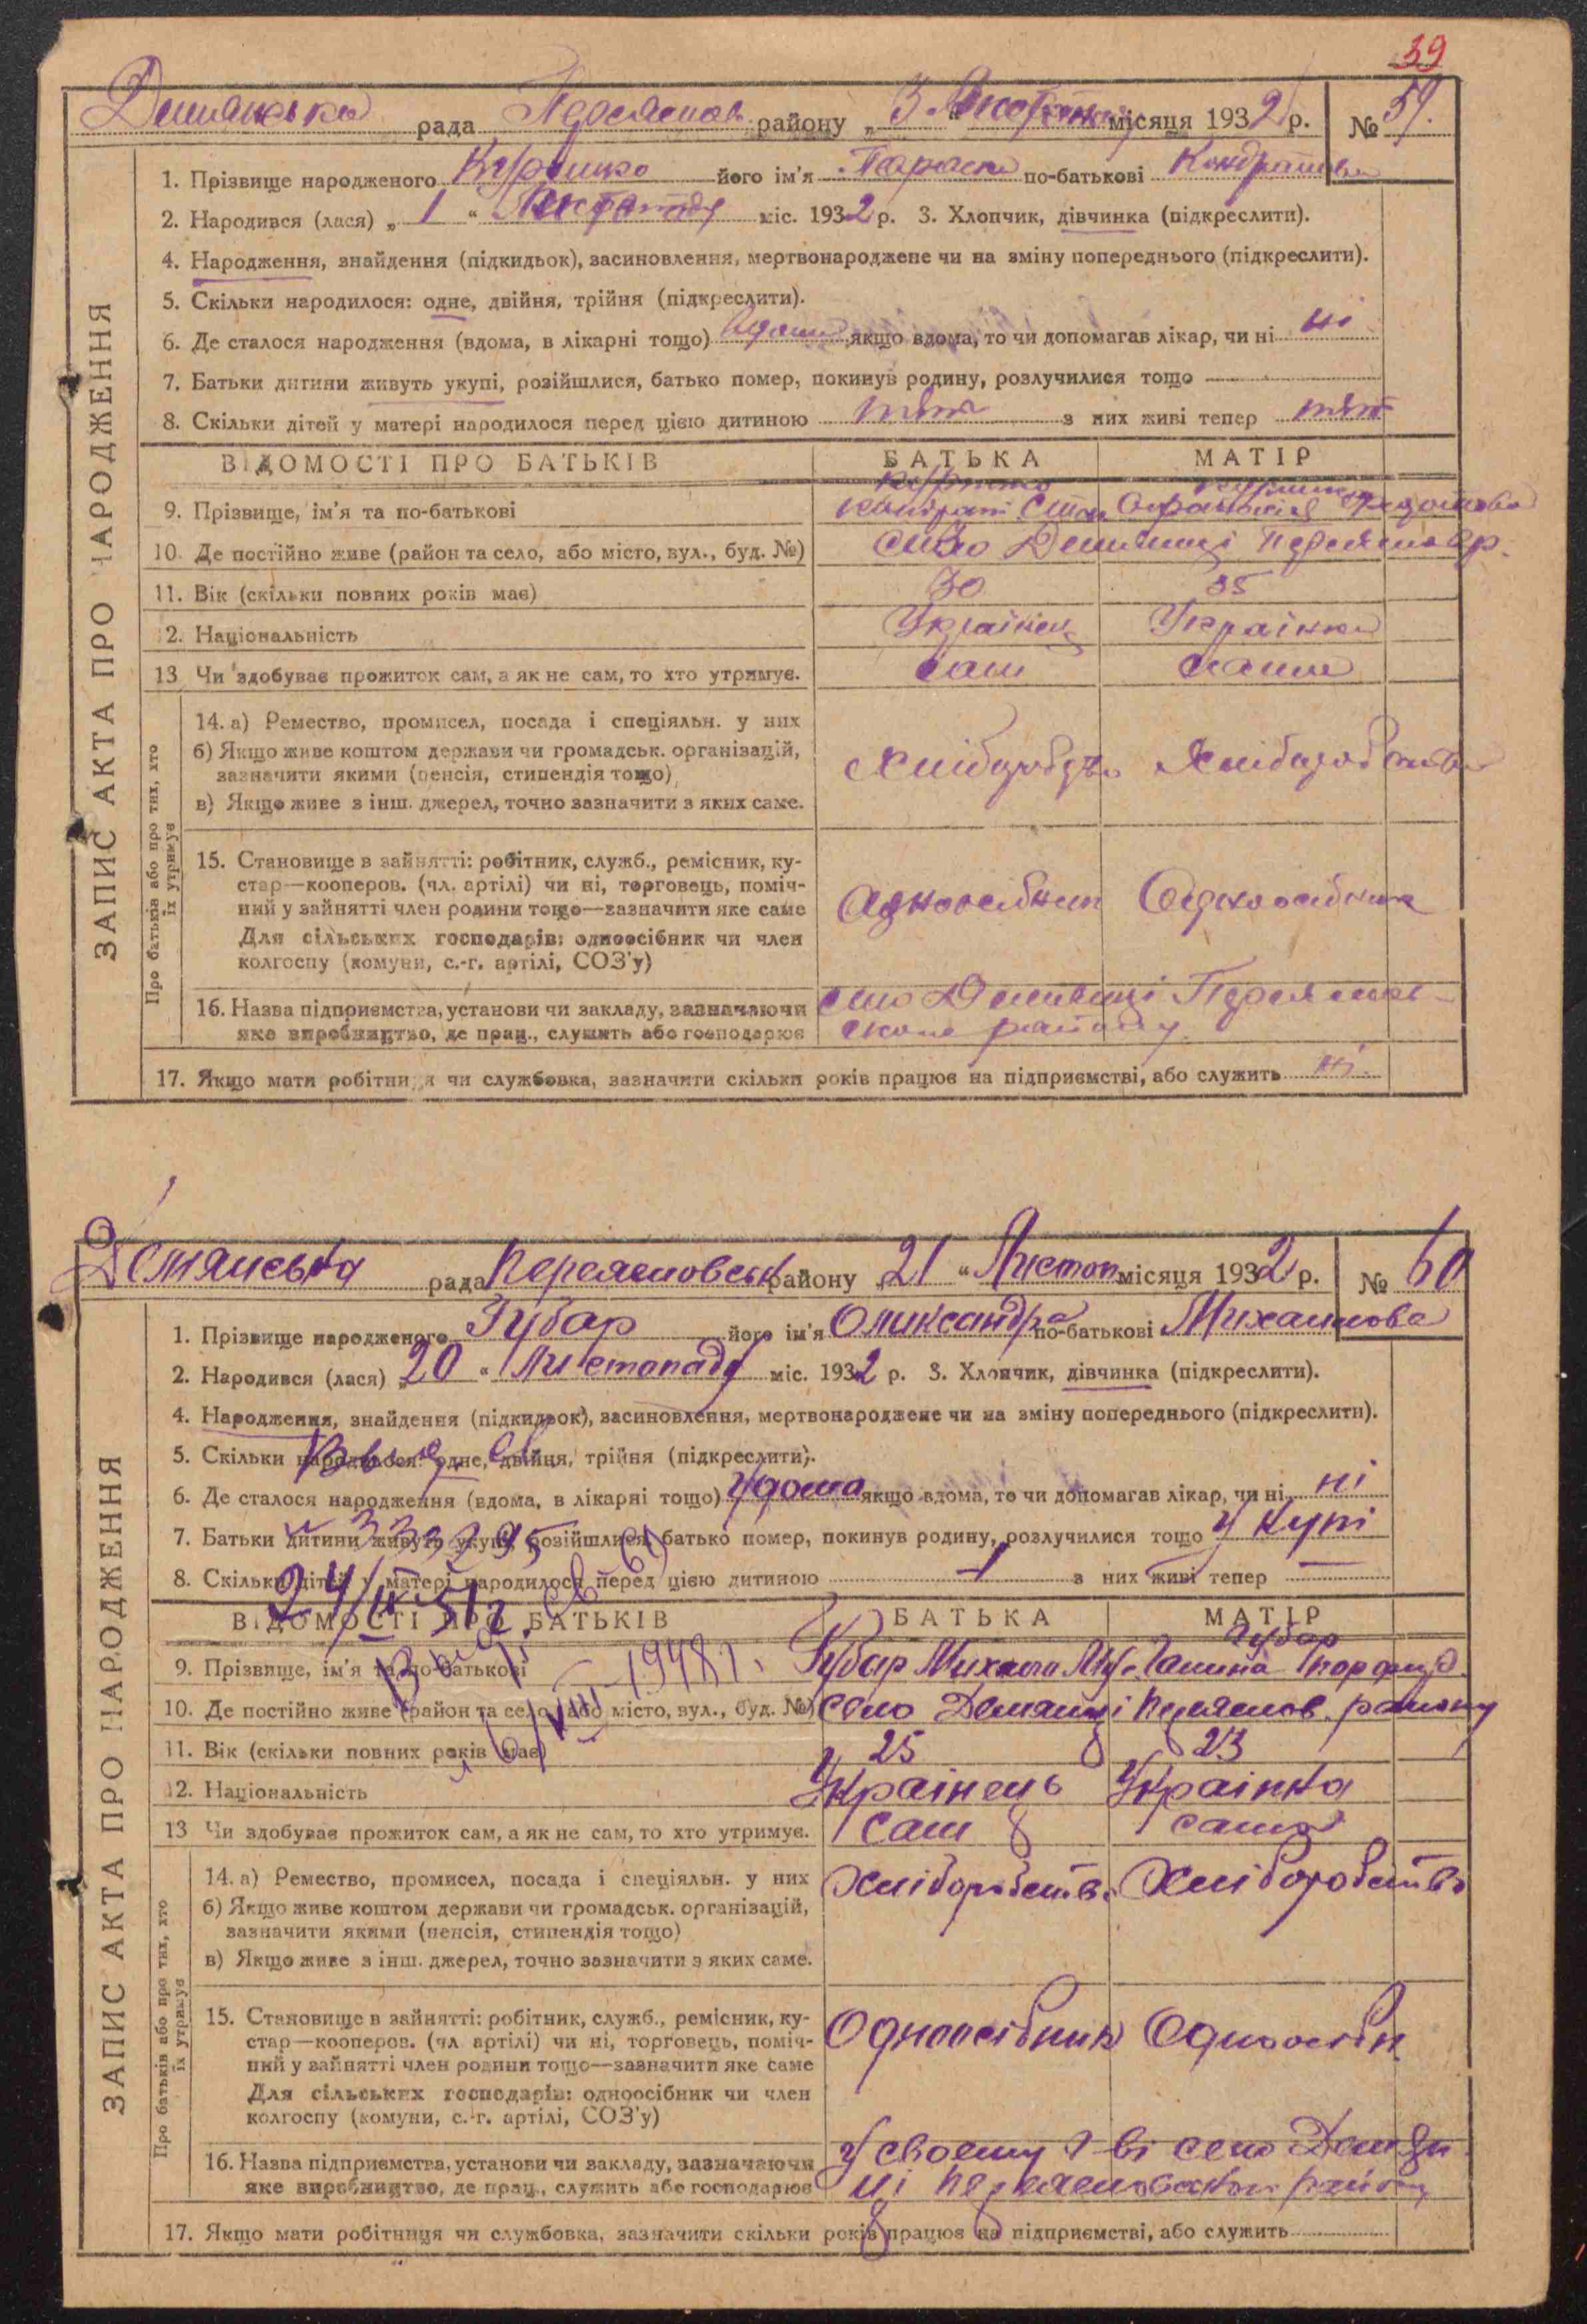 39
Демянська рада Переяслов району „ 3 “ місяця 1932 р. № 59.
ЗАПИС АКТА ПРО НАРОДЖЕННЯ
1. Прізвище народженого його ім'я Параска по-батькові Кондратова
2. Народився (лася) „ 1 “ міс. 1932 р. 3. Хлопчик, дівчинка (підкреслити).
4. Народження, знайдення (підкидьок), засиновлення, мертвонароджене чи на зміну попереднього (підкреслити).
5. Скільки народилося: одне, двійня, трійня (підкреслити).
6. Де сталося народження (вдома, в лікарні тощо) вдома якщо вдома, то чи допомагав лікар, чи ні ні
7. Батьки дитини живуть укупі, розійшлися, батько помер, покинув родину, розлучилися тощо
8. Скільки дітей у матері народилося перед цією дитиною з них живі тепер
ВІДОМОСТІ ПРО БАТЬКІВ БАТЬКА МАТІР
9. Прізвище, ім'я та по-батькові Кондрат
10. Де постійно живе (район та село, або місто, вул., буд. №) село Демянці Переяслов р.
11. Вік (скільки повних років має) 30 35
12. Національність Українец Українка
13 Чи здобуває прожиток сам, а як не сам, то хто утримує. сам сама
Про батьків або про тих, хто їх утримує
14. а) Ремество, промисел, посада і спеціяльн. у них
б) Якщо живе коштом держави чи громадськ. організацій,
зазначити якими (пенсія, стипендія тощо)
в) Якщо живе з інш. джерел, точно зазначити з яких саме.
15. Становище в зайнятті: робітник, служб., ремісник, ку-
стар—кооперов. (чл. артілі) чи ні, торговець, поміч-
ний у зайнятті член родини тощо—зазначити яке саме
Для сільських господарів: одноосібник чи член
колгоспу (комуни, с.-г. артілі, СОЗ'у)
Одноосібник Одноосібник
16. Назва підприємства, установи чи закладу, зазначаючи село Демянці Переяслов-
яке виробництво, де прац., служить або господарює ского району
17. Якщо мати робітниця чи службовка, зазначити скільки років працює на підприємстві, або служить ні.
Демянська рада Переясловськ району „ 21 “ Листоп місяця 1932 р. № 60
ЗАПИС АКТА ПРО НАРОДЖЕННЯ
1. Прізвище народженого Губар його ім'я Олександра по-батькові Михайлова
2. Народився (лася) „ 20 “ Листопаду міс. 1932 р. 3. Хлопчик, дівчинка (підкреслити).
4. Народження, знайдення (підкидьок), засиновлення, мертвонароджене чи на зміну попереднього (підкреслити).
5. Скільки народилося: одне, двійня, трійня (підкреслити).
6. Де сталося народження (вдома, в лікарні тощо) Удома якщо вдома, то чи допомагав лікар, чи ні ні
7. Батьки дитини живуть укупі, розійшлися, батько помер, покинув родину, розлучилися тощо у купі
8. Скільки дітей у матері народилося перед цією дитиною з них живі тепер
24/IV-51г
ВІДОМОСТІ ПРО БАТЬКІВ БАТЬКА МАТІР
9. Прізвище, ім'я та по-батькові Губар Михаил Губар Галина
10. Де постійно живе (район та село, або місто, вул., буд. №) село Демянці Переяслов. району
11. Вік (скільки повних років має) 25 23
12. Національність Українець Українка
13 Чи здобуває прожиток сам, а як не сам, то хто утримує. сам сама
Про батьків або про тих, хто їх утримує
14. а) Ремество, промисел, посада і спеціяльн. у них Хліборобств. Хліборобство
б) Якщо живе коштом держави чи громадськ. організацій,
зазначити якими (пенсія, стипендія тощо)
в) Якщо живе з інш. джерел, точно зазначити з яких саме.
15. Становище в зайнятті: робітник, служб., ремісник, ку-
стар—кооперов. (чл. артілі) чи ні, торговець, поміч-
ний у зайнятті член родини тощо—зазначити яке саме
Для сільських господарів: одноосібник чи член
колгоспу (комуни, с.-г. артілі, СОЗ'у)
Одноосібник Одноосібн
16. Назва підприємства, установи чи закладу, зазначаючи У своему г-ві село Демян
яке виробництво, де прац., служить або господарює ці Переясловском району
17. Якщо мати робітниця чи службовка, зазначити скільки років працює на підприємстві, або служить